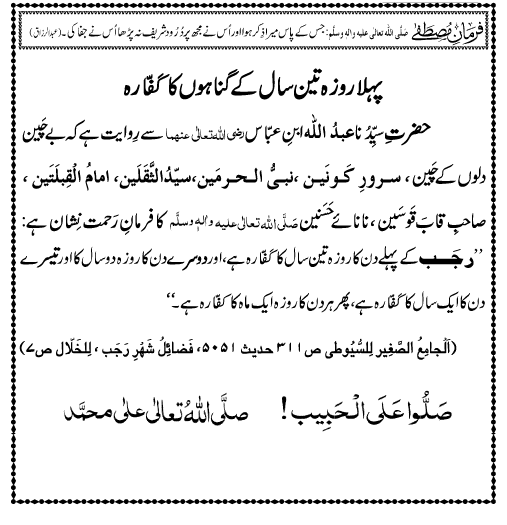 فرمانِ مصطفٰے صلَّی اللہ تعالٰی علیہ واٰلہٖ وسلَّم: جس کے پاس میرا ذکر ہوا اور اُس نے مجھ پر دُرُود شریف نہ پڑھا اُس نے جفا کی۔ (عبدالرزاق)
پہلا روزہ تین سال کے گناہوں کا کفّارہ
حضرتِ سیِّدُنا عبدُ اللّٰہ ابنِ عبّاس رضی اللہ تعالٰی عنہما سے رِوایت ہے کہ بے چَین
دلوں کے چَین، سرورِ کونَین، نبیُّ الحرمَین، سیّدُالثَّقَلَین، امامُ القِبلَتَین،
صاحبِ قابَ قَوسَین، نانائے حَسَنَین صَلَّی اللہُ تعالٰی علیہ واٰلہٖ وسلَّم کا فرمانِ رَحمت نِشان ہے:
”رَجَب کے پہلے دن کا روزہ تین سال کا کفّارہ ہے، اور دوسرے دن کا روزہ دو سال کا اور تیسرے
دن کا ایک سال کا کفّارہ ہے، پھر ہر دن کا روزہ ایک ماہ کا کفّارہ ہے۔“
(اَلْجامِعُ الصَّغِیر لِلسُّیُوطی ص۳۱۱ حدیث ۵۰۵۱، فَضائِلُ شَھْرِ رَجَب، لِلخَلّال ص۷)
صَلُّوا عَلَی الْحَبِیب! صلَّی اللہُ تعالٰی علٰی محمَّد